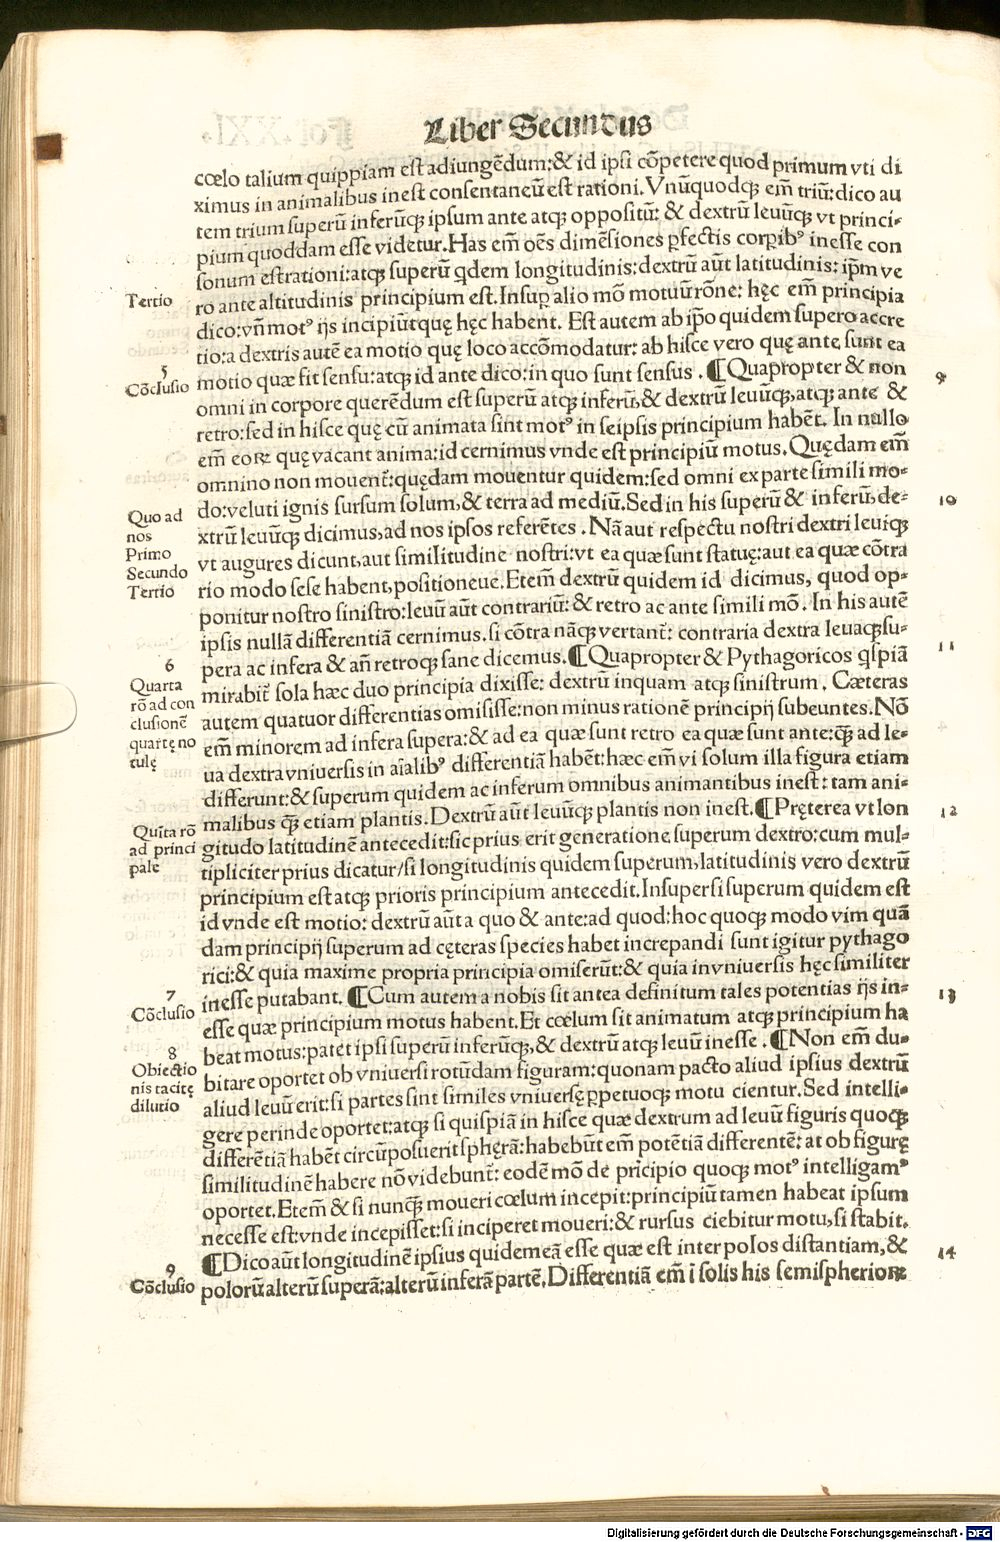 Liber Secundus
cœlo talium quippiam est adiungēdum:& id ipsi cōpetere quod primum vti di
ximus in animalibus inest consentaneū est rationi. Vnūquodqȝ em̄ triū: dico au
tem trium superū inferūqȝ ipsum ante atqȝ oppositū: & dextrū leuūqȝ vt princi-
pium quoddam esse videtur. Has em̄ oēs dimēsiones ꝑfectis corꝑibꝰ inesse con
sonum est rationi: atqȝ superū qdem longitudinis: dextrū aūt latitudinis: ip̄m ve
ro ante altitudinis principium est. Insuꝑ alio mō motuū rōne: hęc em̄ principia
dico: vn̄ motꝰ ijs incipiūt quę hęc habent. Est autem ab ip̄o quidem supero accre
tio: a dextris autē ea motio quę loco accōmodatur: ab hisce vero quę ante sunt ea
motio quæ fit sensu: atqȝ id ante dico: in quo sunt sensus. ¶ Quapropter & non
omni in corpore querēdum est superū atqȝ inferū, & dextrū leuūqȝ, atqȝ ante &
retro: sed in hisce quę cū animata sint motꝰ in seipsis principium habēt. In nullo
em̄ eoꝝ quę vacant anima: id cernimus vnde est principiū motus. Quędam em̄
omnino non mouent̄: quędam mouentur quidem: sed omni ex parte simili mo-
do: veluti ignis sursum solum, & terra ad mediū. Sed in his superū & inferū, de-
xtrū leuūqȝ dicimus, ad nos ipsos referētes. Nā aut respectu nostri dextri leuiqȝ
vt augures dicunt, aut similitudine nostri: vt ea quæ sunt statuę: aut ea quæ cōtra
rio modo sese habent, positioneue. Etem̄ dextrū quidem id dicimus, quod op-
ponitur nostro sinistro: leuū aūt contrariū: & retro ac ante simili mō. In his autē
ipsis nullā differentiā cernimus. si cōtra nāqȝ vertant̄: contraria dextra leuaqȝ su-
pera ac infera & an̄ retroqȝ sane dicemus. ¶ Quapropter & Pythagoricos qspiā
mirabit̄ sola hæc duo principia dixisse: dextrū inquam atqȝ sinistrum. Cæteras
autem quatuor differentias omisisse: non minus rationē principij subeuntes. Nō
em̄ minorem ad infera supera: & ad ea quæ sunt retro ea quæ sunt ante: qȝ̄ ad le-
ua dextra vniuersis in aīalibꝰ differentiā habēt: hæc em̄ vi solum illa figura etiam
differunt: & superum quidem ac inferum omnibus animantibus inest: tam ani-
malibus qȝ̄ etiam plantis. Dextrū aūt leuūqȝ plantis non inest. ¶ Pręterea vt lon
gitudo latitudinē antecedit: sic prius erit generatione superum dextro: cum mul-
tipliciter prius dicatur/si longitudinis quidem superum, latitudinis vero dextrū
principium est atqȝ prioris principium antecedit. Insuper si superum quidem est
id vnde est motio: dextrū aūt a quo & ante: ad quod: hoc quoqȝ modo vim quā
dam principij superum ad cęteras species habet increpandi sunt igitur pythago
rici: & quia maxime propria principia omiserūt: & quia in vniuersis hęc similiter
inesse putabant. ¶ Cum autem a nobis sit antea definitum tales potentias ijs in-
esse quæ principium motus habent. Et cœlum sit animatum atqȝ principium ha
beat motus: patet ipsi superū inferūqȝ, & dextrū atqȝ leuū inesse. ¶ Non em̄ du-
bitare oportet ob vniuersi rotūdam figuram: quonam pacto aliud ipsius dextrū
aliud leuū erit: si partes sint similes vniuersę ꝑpetuoqȝ motu cientur. Sed intelli-
gere perinde oportet: atqȝ si quispiā in hisce quæ dextrum ad leuū figuris quoqȝ
differētiā habēt circūposuerit sphęrā: habebūt em̄ potētiā differentē: at ob figurę
similitudinē habere nō videbunt̄: eodē mō de pricipio quoqȝ motꝰ intelligamꝰ
oportet. Etem̄ & si nunqȝ̄ moueri cœlum incepit: principiū tamen habeat ipsum
necesse est: vnde incepisset: si inciperet moueri: & rursus ciebitur motu, si stabit.
¶ Dico aūt longitudinē ipsius quidem eā esse quæ est inter polos distantiam, &
polorū alterū superā: alterū inferā partē. Differentiā em̄ ī solis his semispherioꝝ
Tertio
5
Cōclusio
Quo ad
nos
Primo
Secundo
Tertio
6
Quarta
rō ad con
clusionē
quartę no
tulę
Quīta rō
ad princi
pale
7
Cōclusio
8
Obiectio
nis tacitę
dilutio
9
Cōclusio
9
10
11
12
13
14
Digitalisierung gefördert durch die Deutsche Forschungsgemeinschaft - DFG